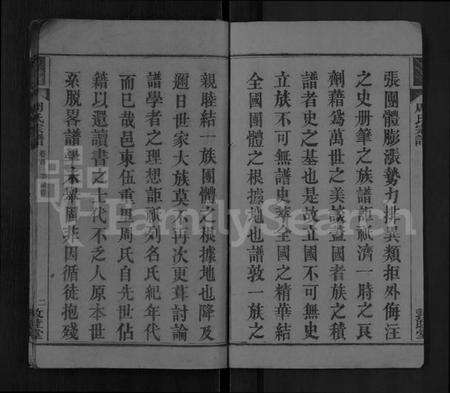 張團體膨漲勢力排異類拒外侮注
之史册筆之族譜豈祇濟一時之艮
劑藉為萬世之美哉蓋國者族之積
譜者史之基也是故立國不可無史
立族不可無譜史萃全國之精華結
全國團體之根據地也譜敦一族之
親睦結一族團體之根據地也降及
邇日世家大族莫不再次更茸討論
譜學者之理想詎祇列名氏紀年代
而已哉邑東伍重周氏自先世佔
籍以還讀書之士代不乏人原本世
系脫畧譜學不舉罔非因循徒抱殘
周氏宗譜
敦睦堂
FamilySearch